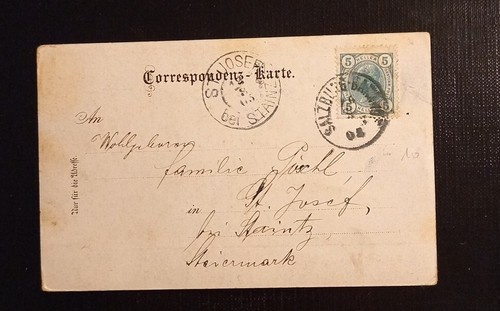 Correspondenz-Karte.
ST. JOSEF
bei STAINZ
5 HELLER 5
5 5
SALZBURG
An
Wohlgeboren
Familie Pöschl
in St. Josef,
bei Stainz,
Steiermark
Nur für die Adresse
10